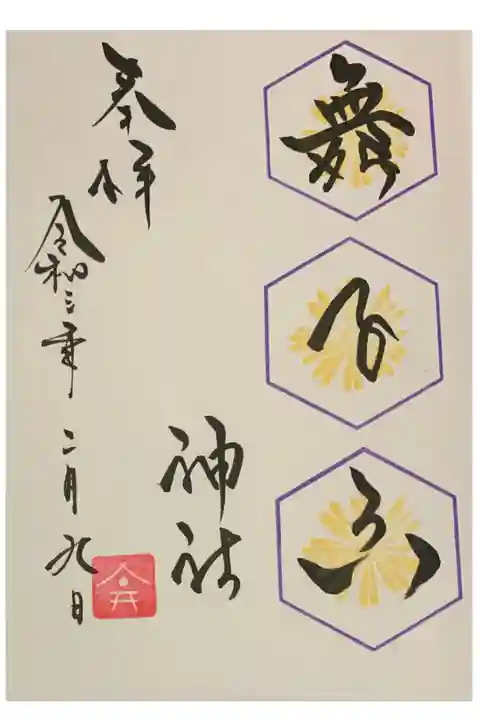 舞
子
六
神社
奉拝
令和三年二月九日